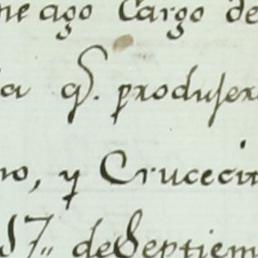 me ago Cargo de
ia qᵉ. produjer
no, y Crucecit
17,, de Septiem